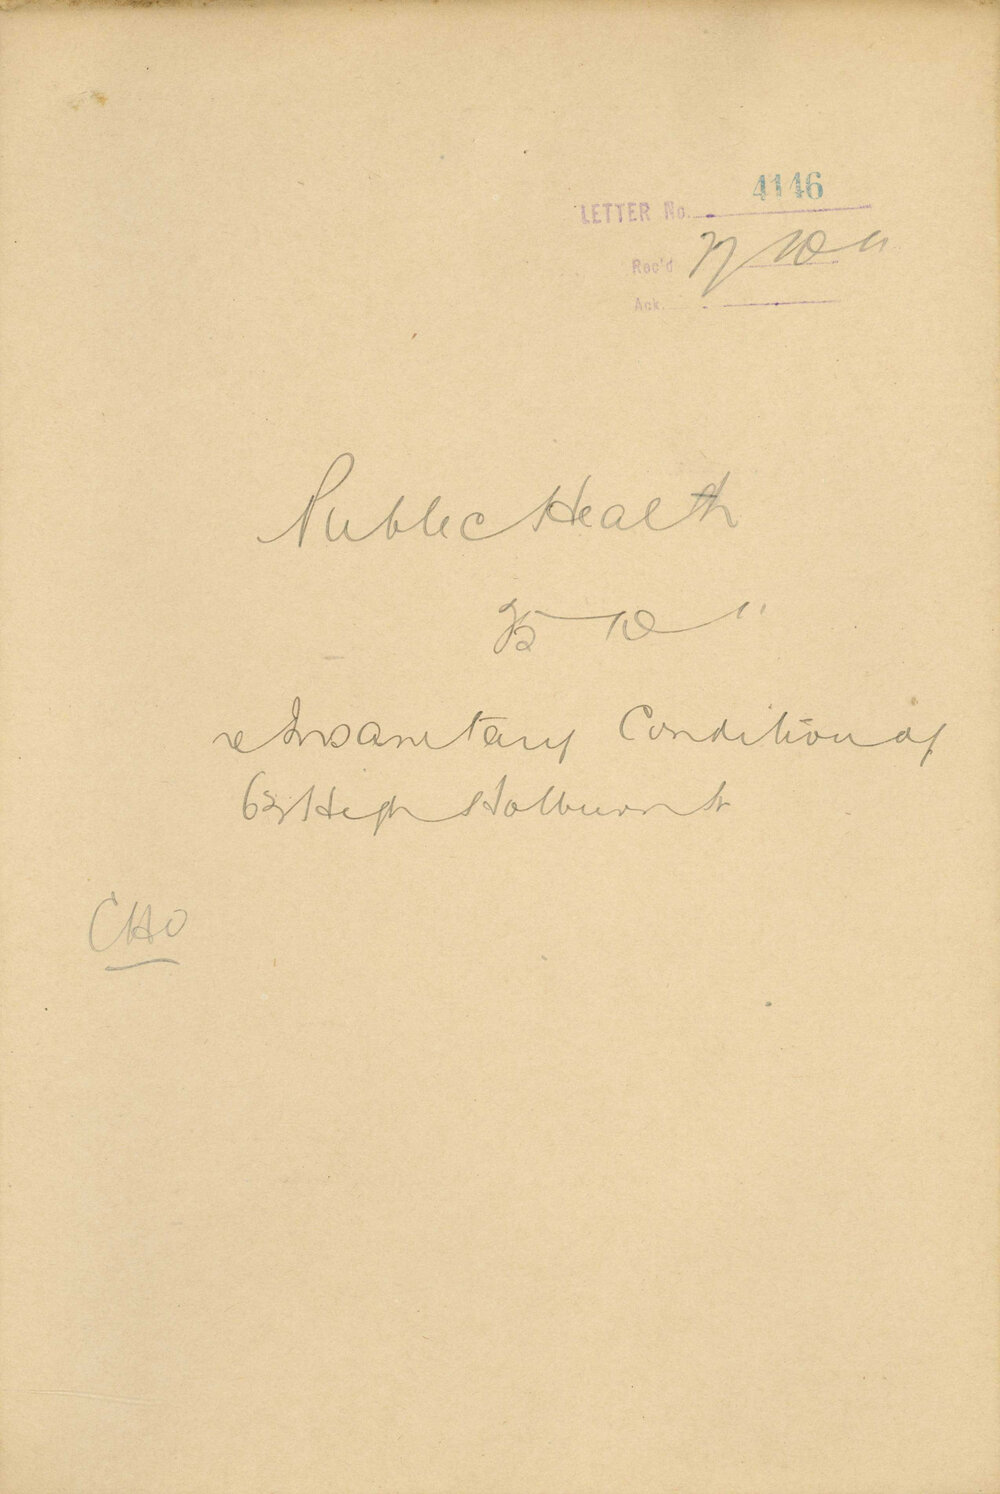 LETTER No. 4146
Rec'd 27 10 11
Ack.
Public Health
25 10 11
re Insanitary Condition of
63 High Holburn St
CHO